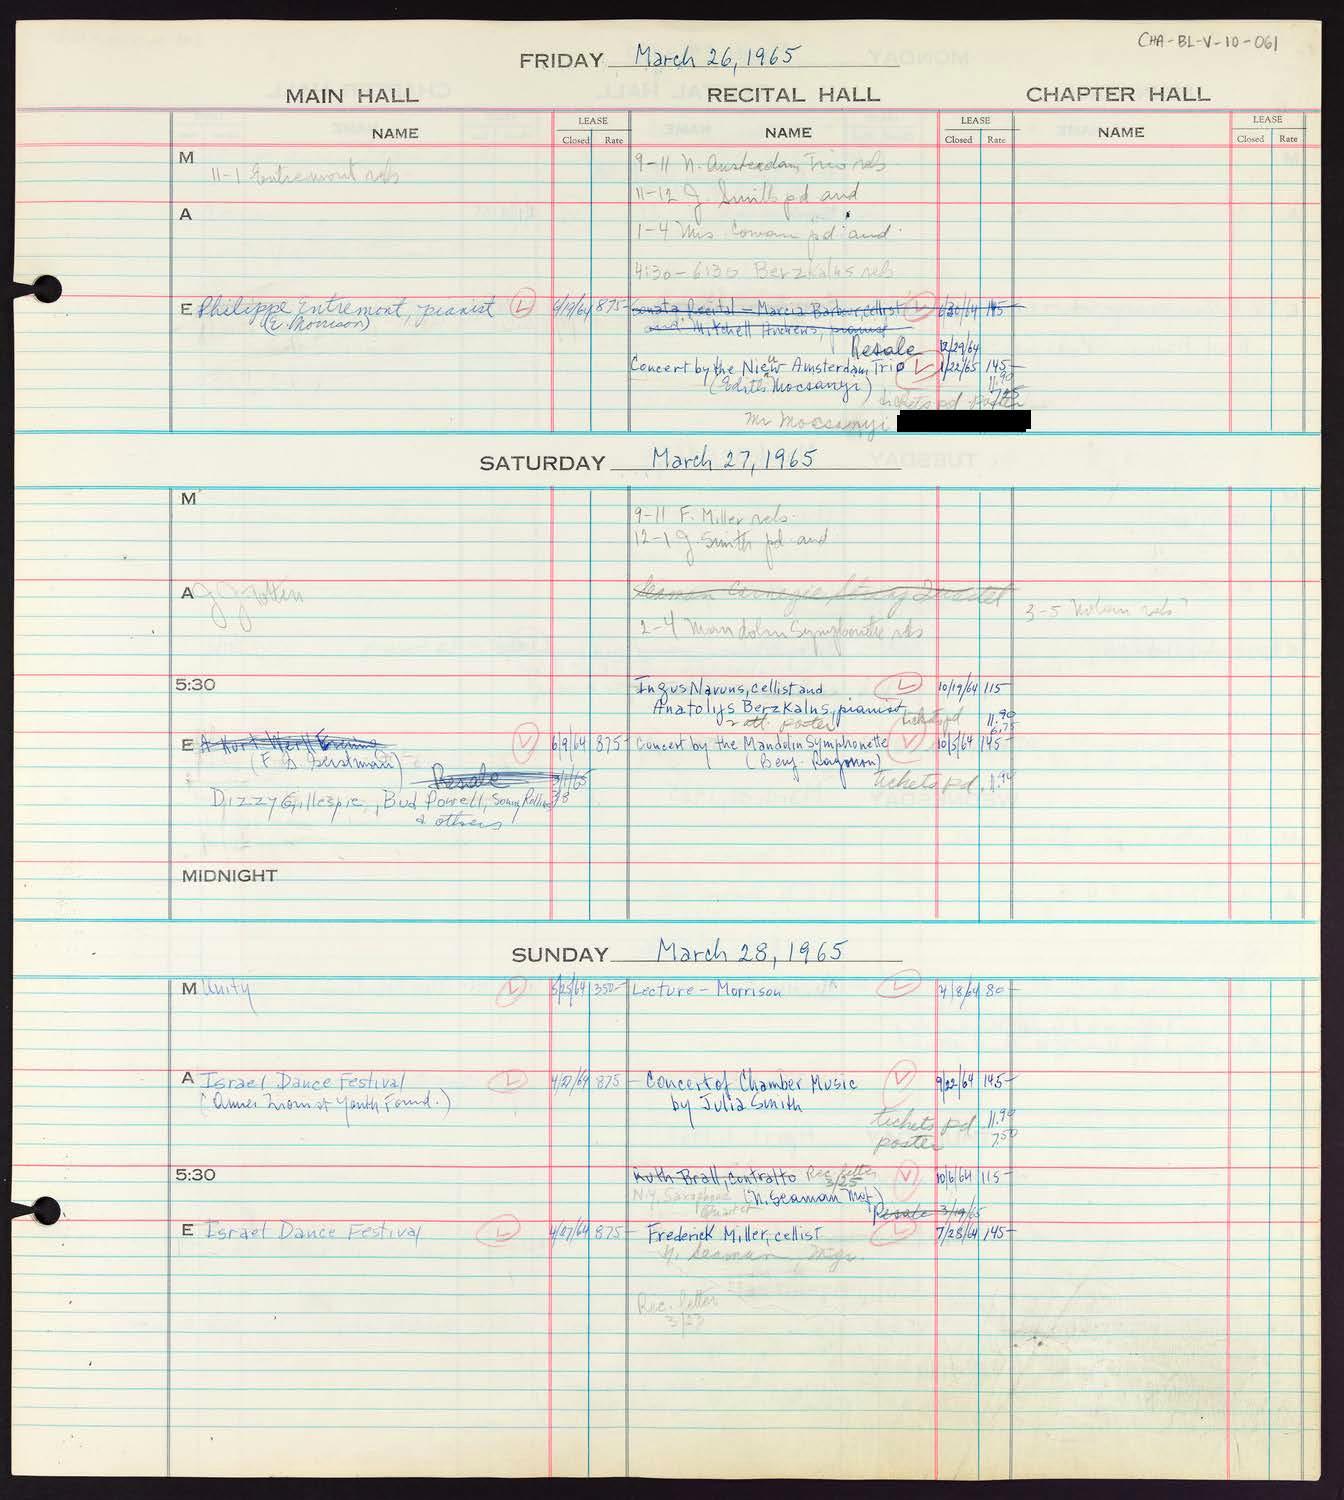 CHA-BL-V-10-061
FRIDAY March 26, 1965
MAIN HALL RECITAL HALL CHAPTER HALL
NAME LEASE Closed Rate NAME LEASE Closed Rate NAME LEASE Closed Rate
M 11-1 Entremont reh
9-11 N. Amsterdam Trio reh
11-12 J. Smith pd and
A
1-4 Mrs Cowan pd and
4:30-6:30 Berzkalns reh
E Philippe Entremont, pianist 875-
(E. Morrison)
Sonata Recital - Marcia Barbour, cellist 6/30/64 145
and Mitchell Andrews, pianist
Resale 12/29/64
Concert by the New Amsterdam Trio 1/22/65 145-
(Edith Mocsanyi) 11.90
tickets pd poster
Mr Mocsanyi
SATURDAY March 27, 1965
M
9-11 F. Miller reh
12-1 J. Smith pd and
A J J
Seaman Carnegie String Quartet
2-4 Mandolin Symphonette reh
3-5 reh?
5:30
Ingus Navuns, cellist and 10/19/64 115
Anatolijs Berzkalns, pianist tickets pd 11.90
poster 6.75
E A Kurt Weill Evening 6/9/64 875-
(F. D. Gerstman)
Resale 3/1/65
Dizzy Gillespie, Bud Powell, Sonny Rollins 3/3
& others
Concert by the Mandolin Symphonette 10/5/64 145-
tickets pd.
MIDNIGHT
SUNDAY March 28, 1965
M Unity 5/25/64 350-
Lecture - Morrison 4/8/64 80-
A Israel Dance Festival 4/27/64 875-
Youth Found.)
Concert of Chamber Music 9/22/64 145-
by Julia Smith
tickets pd 11.90
poster 7.50
5:30
Ruth Brall, contralto Rec. letter 3/25 10/6/64 115-
N.Y. Saxophone Quartet (N. Seaman Mgt)
Resale 3/19/65
E Israel Dance Festival 4/27/64 875-
Frederick Miller, cellist 7/28/64 145-
N. Seaman, Mgr.
Rec. letter
3/23